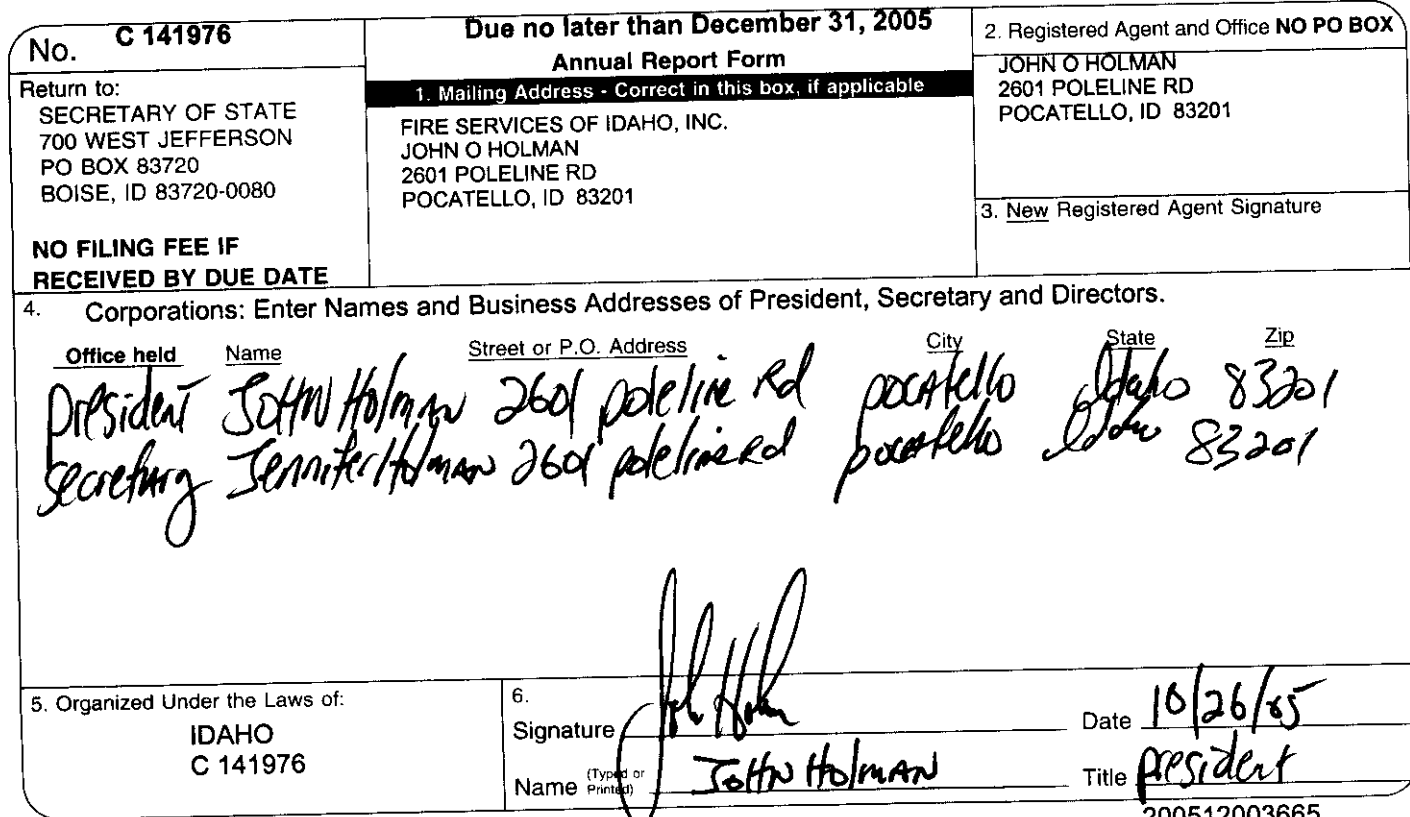 No. C 141976
Return to:
SECRETARY OF STATE
700 WEST JEFFERSON
PO BOX 83720
BOISE, ID 83720-0080
NO FILING FEE IF
RECEIVED BY DUE DATE
Due no later than December 31, 2005
Annual Report Form
1. Mailing Address - Correct in this box, if applicable
FIRE SERVICES OF IDAHO, INC.
JOHN O HOLMAN
2601 POLELINE RD
POCATELLO, ID 83201
2. Registered Agent and Office NO PO BOX
JOHN O HOLMAN
2601 POLELINE RD
POCATELLO, ID 83201
3. New Registered Agent Signature
4. Corporations: Enter Names and Business Addresses of President, Secretary and Directors.
Office held Name Street or P.O. Address City State Zip
president JOHN Holman 2601 poleline Rd pocatello Idaho 83201
secretary Jennifer Holman 2601 poleline Rd pocatello Idaho 83201
5. Organized Under the Laws of:
IDAHO
C 141976
6.
Signature John Holman Date 10/26/05
Name (Typed or Printed) JOHN HolmAN Title president
200512003665